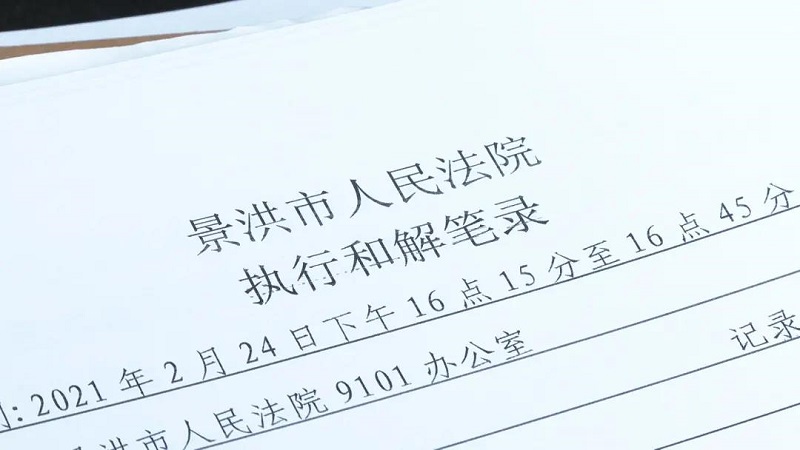 景洪市人民法院
执行和解笔录
: 2021 年 2 月 24 日下午 16 点 15 分至 16 点 45 分
景洪市人民法院 9101 办公室 记录